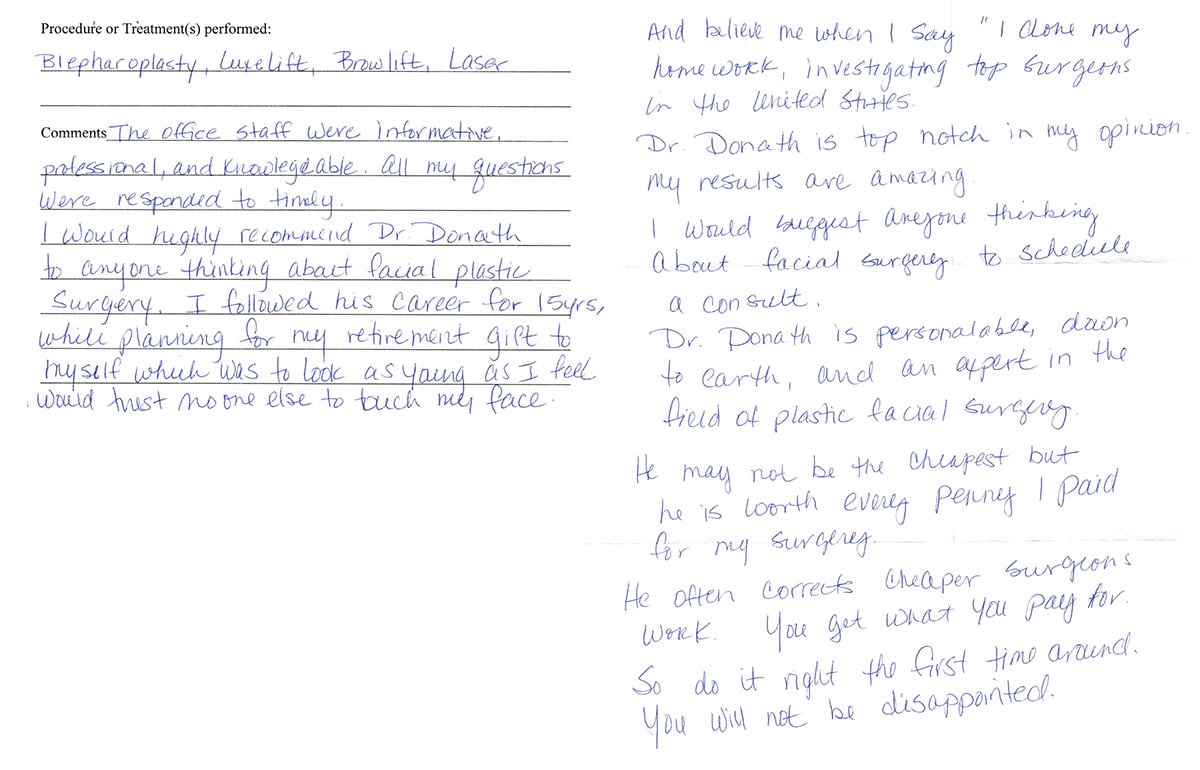 Procedure or Treatment(s) performed:
Blepharoplasty, Luxelift, Browlift, Laser
Comments The office staff were informative,
professional, and knowlegeable. All my questions
were responded to timely.
I would highly recommend Dr. Donath
to anyone thinking about facial plastic
surgery. I followed his career for 15yrs,
while planning for my retirement gift to
myself which was to look as young as I feel
would trust no one else to touch my face.
And believe me when I say "I done my
homework, investigating top surgeons
in the United States.
Dr. Donath is top notch in my opinion.
My results are amazing.
I would suggest anyone thinking
about facial surgery to schedule
a consult.
Dr. Donath is personalable, down
to earth, and an expert in the
field of plastic facial surgery.
He may not be the cheapest but
he is worth every penny I paid
for my surgery.
He often corrects cheaper surgeons
work. You get what you pay for.
So do it right the first time around.
You will not be disappointed.